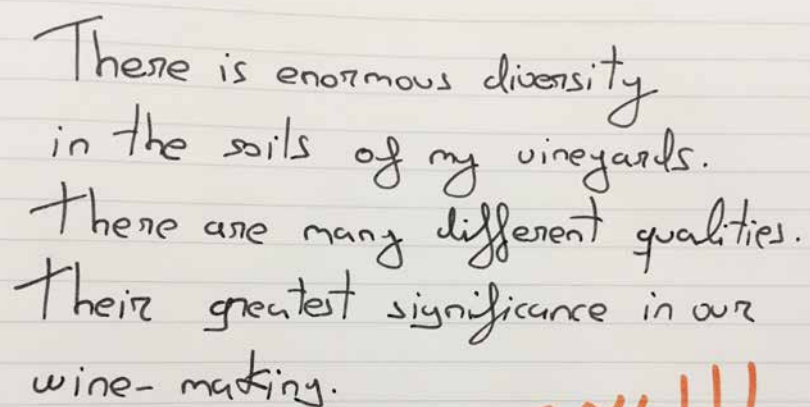 There is enormous diversity
in the soils of my vineyards.
There are many different qualities.
Their greatest significance in our
wine-making.
!!!